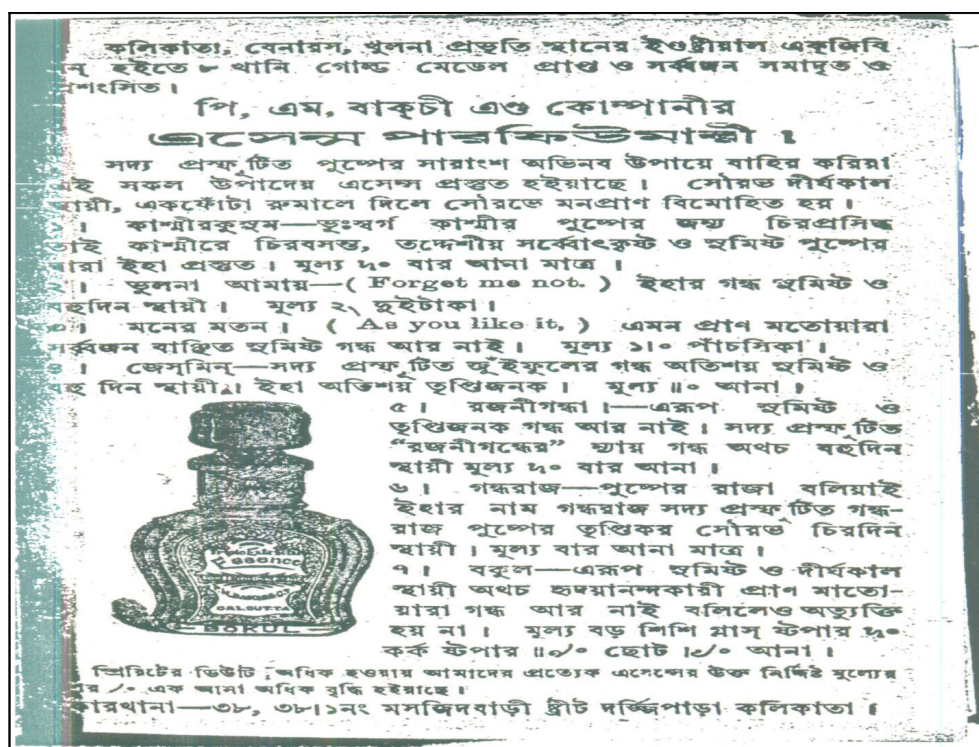 কলিকাতা, বেনারস, খুলনা প্রভৃতি স্থানের ইণ্ডষ্ট্রীয়াল একজিবি
ন্ হইতে ৮ থানি গোল্ড মেডেল প্রাপ্ত ও সর্ব্বজন সমাদৃত ও
প্রশংসিত।
পি, এম, বাক্‌চী এণ্ড কোম্পানীর
এসেন্স পারফিউমারী।
সদ্য প্রস্ফুটিত পুষ্পের সারাংশ অভিনব উপায়ে বাহির করিয়া
এই সকল উপাদেয় এসেন্স প্রস্তুত হইয়াছে। সৌরভ দীর্ঘকাল
স্থায়ী, একফোঁটা রুমালে দিলে সৌরভে মনপ্রাণ বিমোহিত হয়।
। কাশ্মীরকুসুম—ভূঃস্বর্গ কাশ্মীর পুষ্পের জন্য চিরপ্রসিদ্ধ
তাই কাশ্মীরে চিরবসন্ত, তদ্দেশীয় সর্ব্বোৎকৃষ্ট ও সুমিষ্ট পুষ্পের
দ্বারা ইহা প্রস্তুত। মূল্য ৸০ বার আনা মাত্র।
। ভুলনা আমায়—( Forget me not. ) ইহার গন্ধ সুমিষ্ট ও
বহুদিন স্থায়ী। মূল্য ২৲ দুইটাকা।
৩। মনের মতন। ( As you like it, ) এমন প্রাণ মতোয়ারা
সর্ব্বজন বাঞ্ছিত সুমিষ্ট গন্ধ আর নাই। মূল্য ১।০ পাঁচসিকা।
। জেস্‌মিন্—সদ্য প্রস্ফুটিত জুঁইফুলের গন্ধ অতিশয় সুমিষ্ট ও
বহু দিন স্থায়ী। ইহা অতিশয় তৃপ্তিজনক। মূল্য ॥০ আনা।
৫। রজনীগন্ধা।—এরূপ সুমিষ্ট ও
তৃপ্তিজনক গন্ধ আর নাই। সদ্য প্রস্ফুটিত
“রজনীগন্ধের” ন্যায় গন্ধ অথচ বহুদিন
স্থায়ী মূল্য ৸০ বার আনা।
৬। গন্ধরাজ—পুষ্পের রাজা বলিয়াই
ইহার নাম গন্ধরাজ সদ্য প্রস্ফুটিত গন্ধ-
রাজ পুষ্পের তৃপ্তিকর সৌরভ চিরদিন
স্থায়ী। মূল্য বার আনা মাত্র।
৭। বকুল—এরূপ সুমিষ্ট ও দীর্ঘকাল
স্থায়ী অথচ হৃদয়ানন্দকারী প্রাণ মাতো-
য়ারা গন্ধ আর নাই বলিলেও অত্যুক্তি
হয় না। মূল্য বড় শিশি গ্লাস্ ষ্টপার ৸০
কর্ক ষ্টপার ॥৵০ ছোট ।৵০ আনা।
Essence
CALCUTTA
BOKUL
স্পিরিটের ডিউটি অধিক হওয়ায় আমাদের প্রত্যেক এসেন্সের উক্ত নির্দ্দিষ্ট মূল্যের
পর ৴০ এক আনা অধিক বৃদ্ধি হইয়াছে।
কারথানা—৩৮, ৩৮।১নং মসজিদবাড়ী ষ্ট্রীট দর্জ্জিপাড়া কলিকাতা।